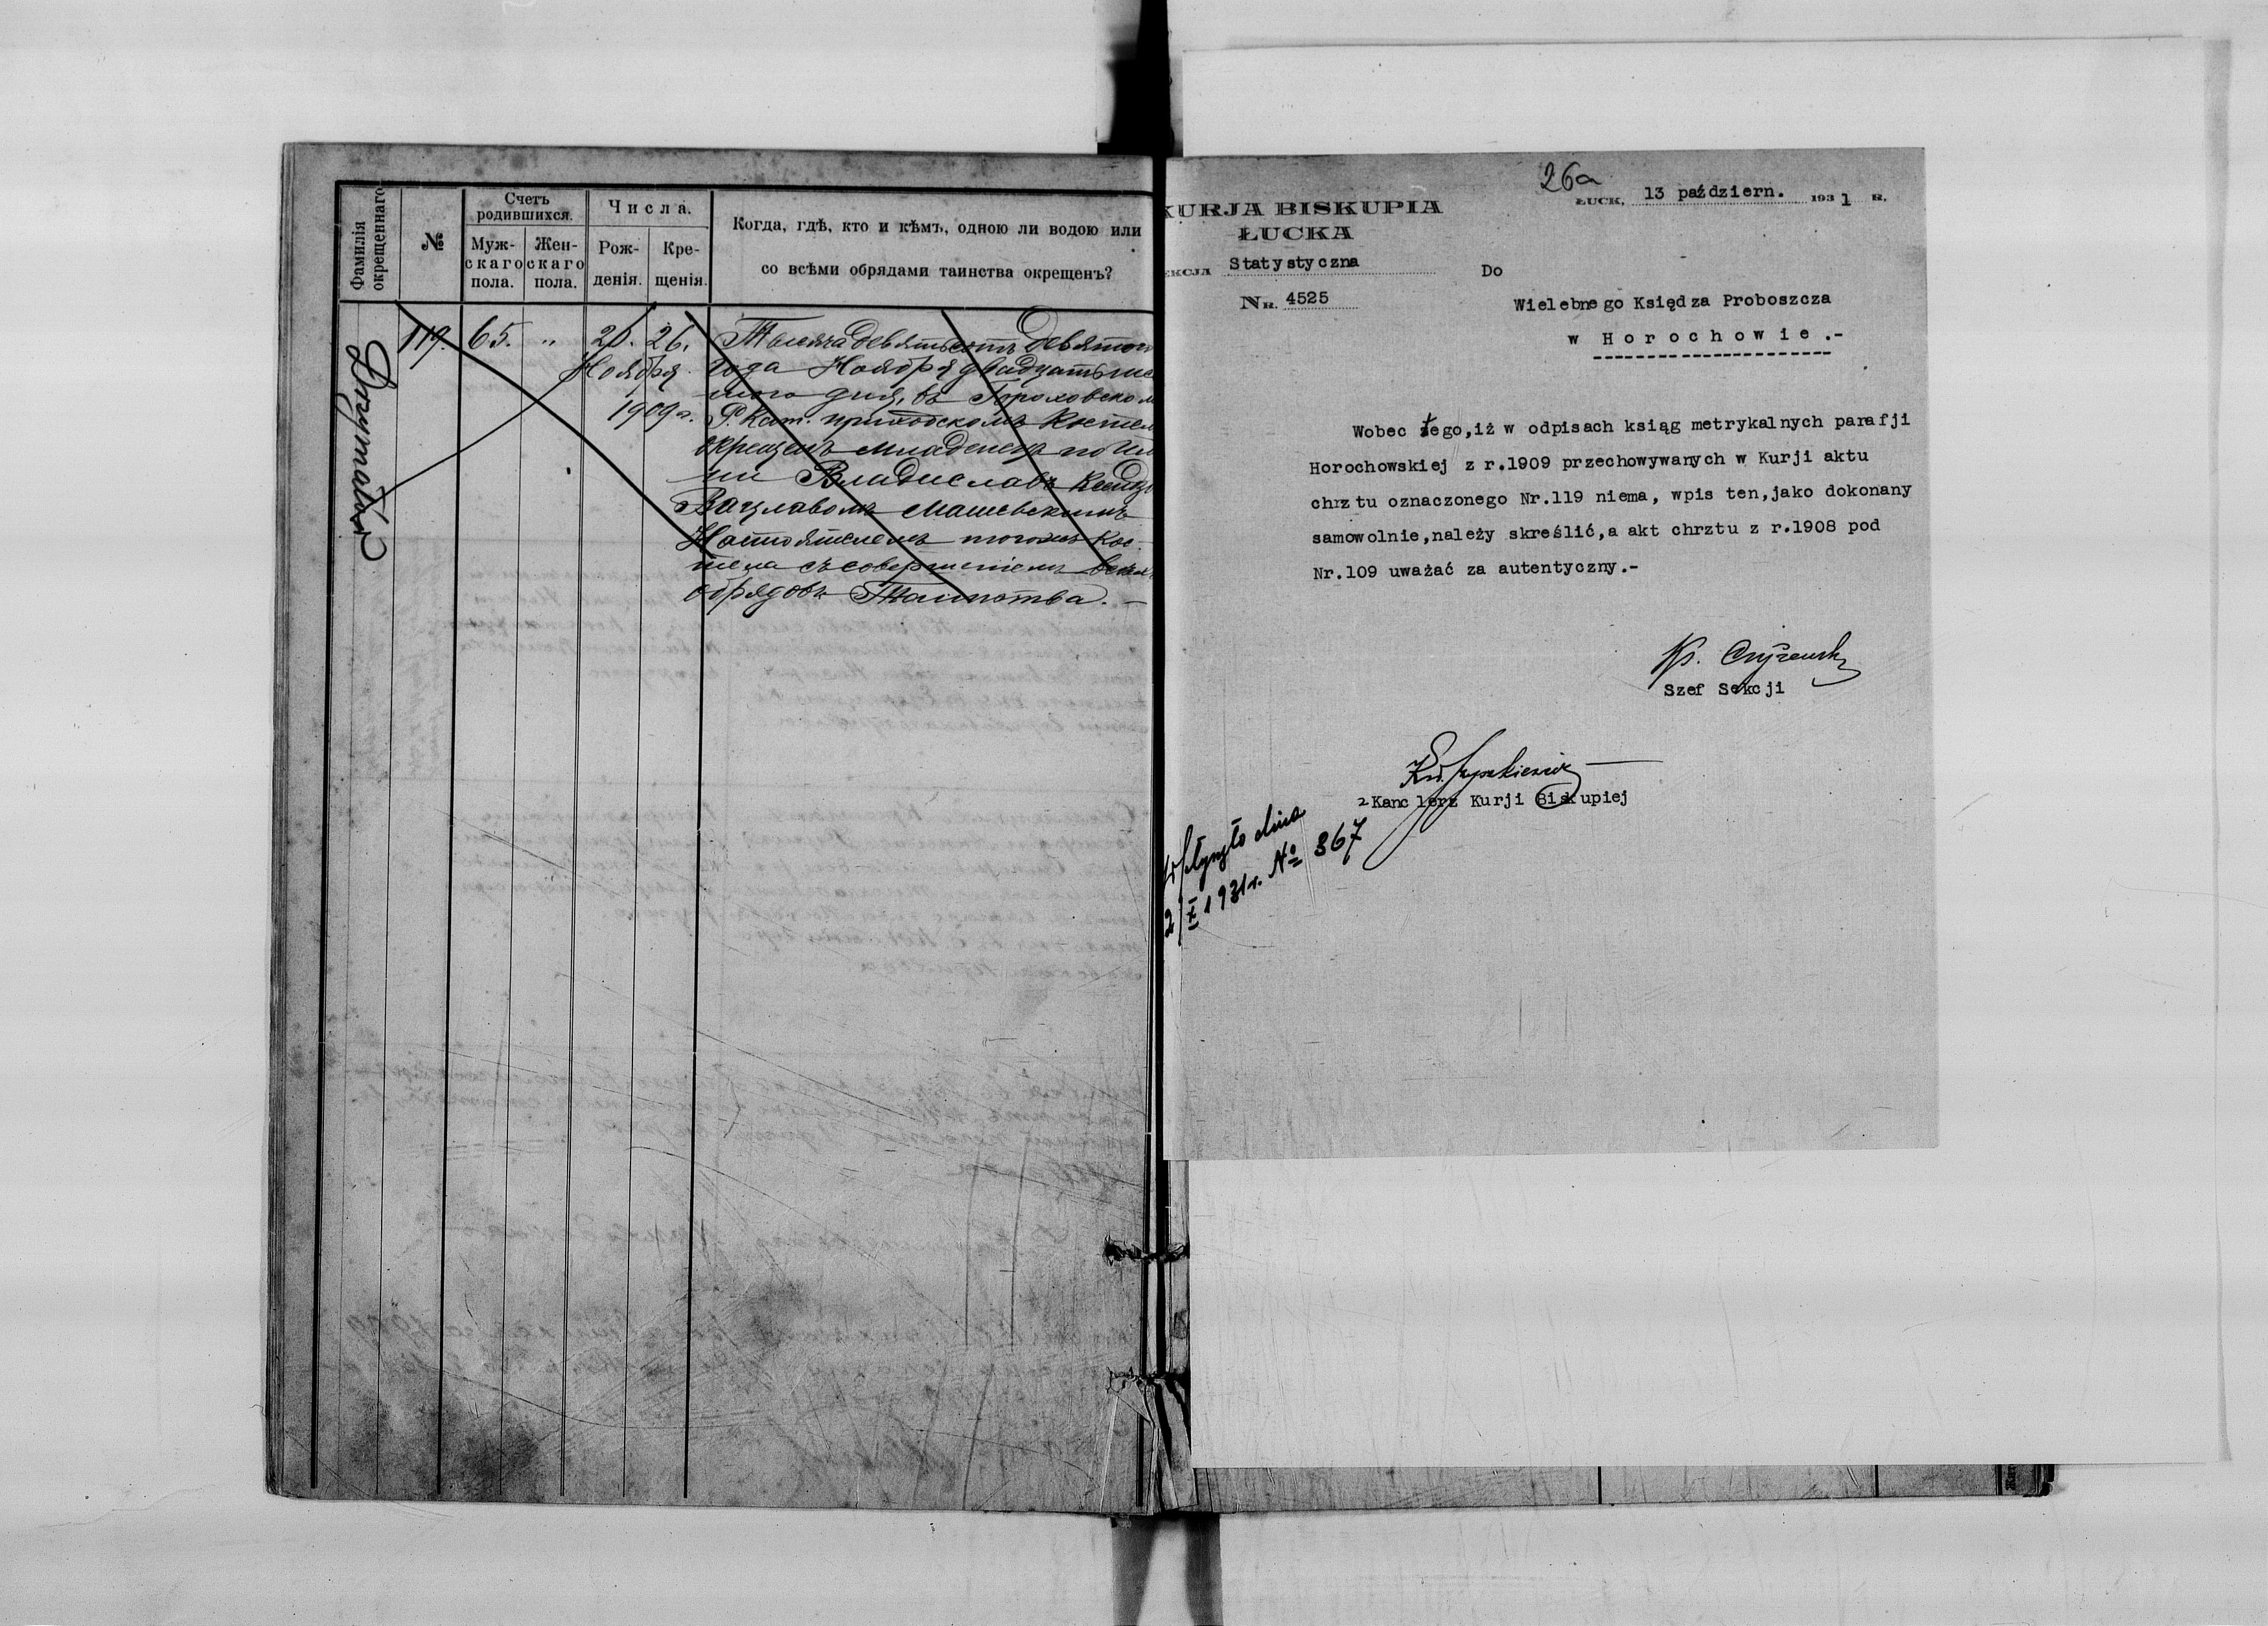 Фамилія окрещеннаго.
№
Счетъ родившихся.
Муж-скаго пола.
Жен-скаго пола.
Числа.
Рож-денія.
Кре-щенія.
Когда, гдѣ, кто и кѣмъ, одною ли водою или
со всѣми обрядами таинства окрещенъ?
119. 65. " 20. 26.
Ноября
1909 г.
Тысяча девятьсотъ девятого
года Ноября двадцать шес
того дня, въ Гороховском
Р. Кат. приходскомъ Костел
окрещенъ младенецъ по им
ни Владиславъ Ксендз
Вацлавомъ Машевскимъ
Настоятелемъ тогожъ Кос-
тела съ совершеніемъ всехъ
обрядовъ Таинства. —
26a
KURJA BISKUPIA
ŁUCKA
EKCJA Statystyczna
Nr. 4525
ŁUCK, 13 październ. 1931 R.
Do
Wielebnego Księdza Proboszcza
w Horochowie.-
Wobec tego,iż w odpisach ksiąg metrykalnych parafji
Horochowskiej z r.1909 przechowywanych w Kurji aktu
chrztu oznaczonego Nr.119 niema, wpis ten,jako dokonany
samowolnie,należy skreślić,a akt chrztu z r.1908 pod
Nr.109 uważać za autentyczny.-
Ks.
Szef Sekcji
Kanclerz Kurji Biskupiej
Wpłynęło dnia
2/X 1931 r. № 867